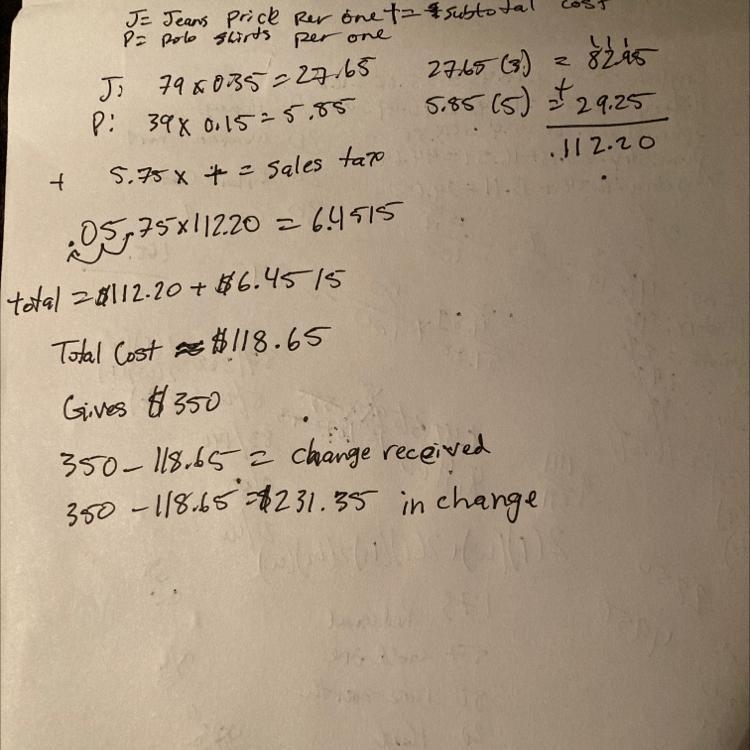 J= Jeans Price Per one t= $ subtotal cost
P= polo shirts per one
J: 79 x 0.35 = 27.65 27.65 (3) = 82.95
P: 39 x 0.15 = 5.85 5.85 (5) = + 29.25
112.20
t 5.75 x t = sales tax
.05.75x112.20 = 6.4515
total = $112.20 + $6.4515
Total Cost ≈ $118.65
Gives $350
350 - 118.65 = change received
350 - 118.65 = $231.35 in change